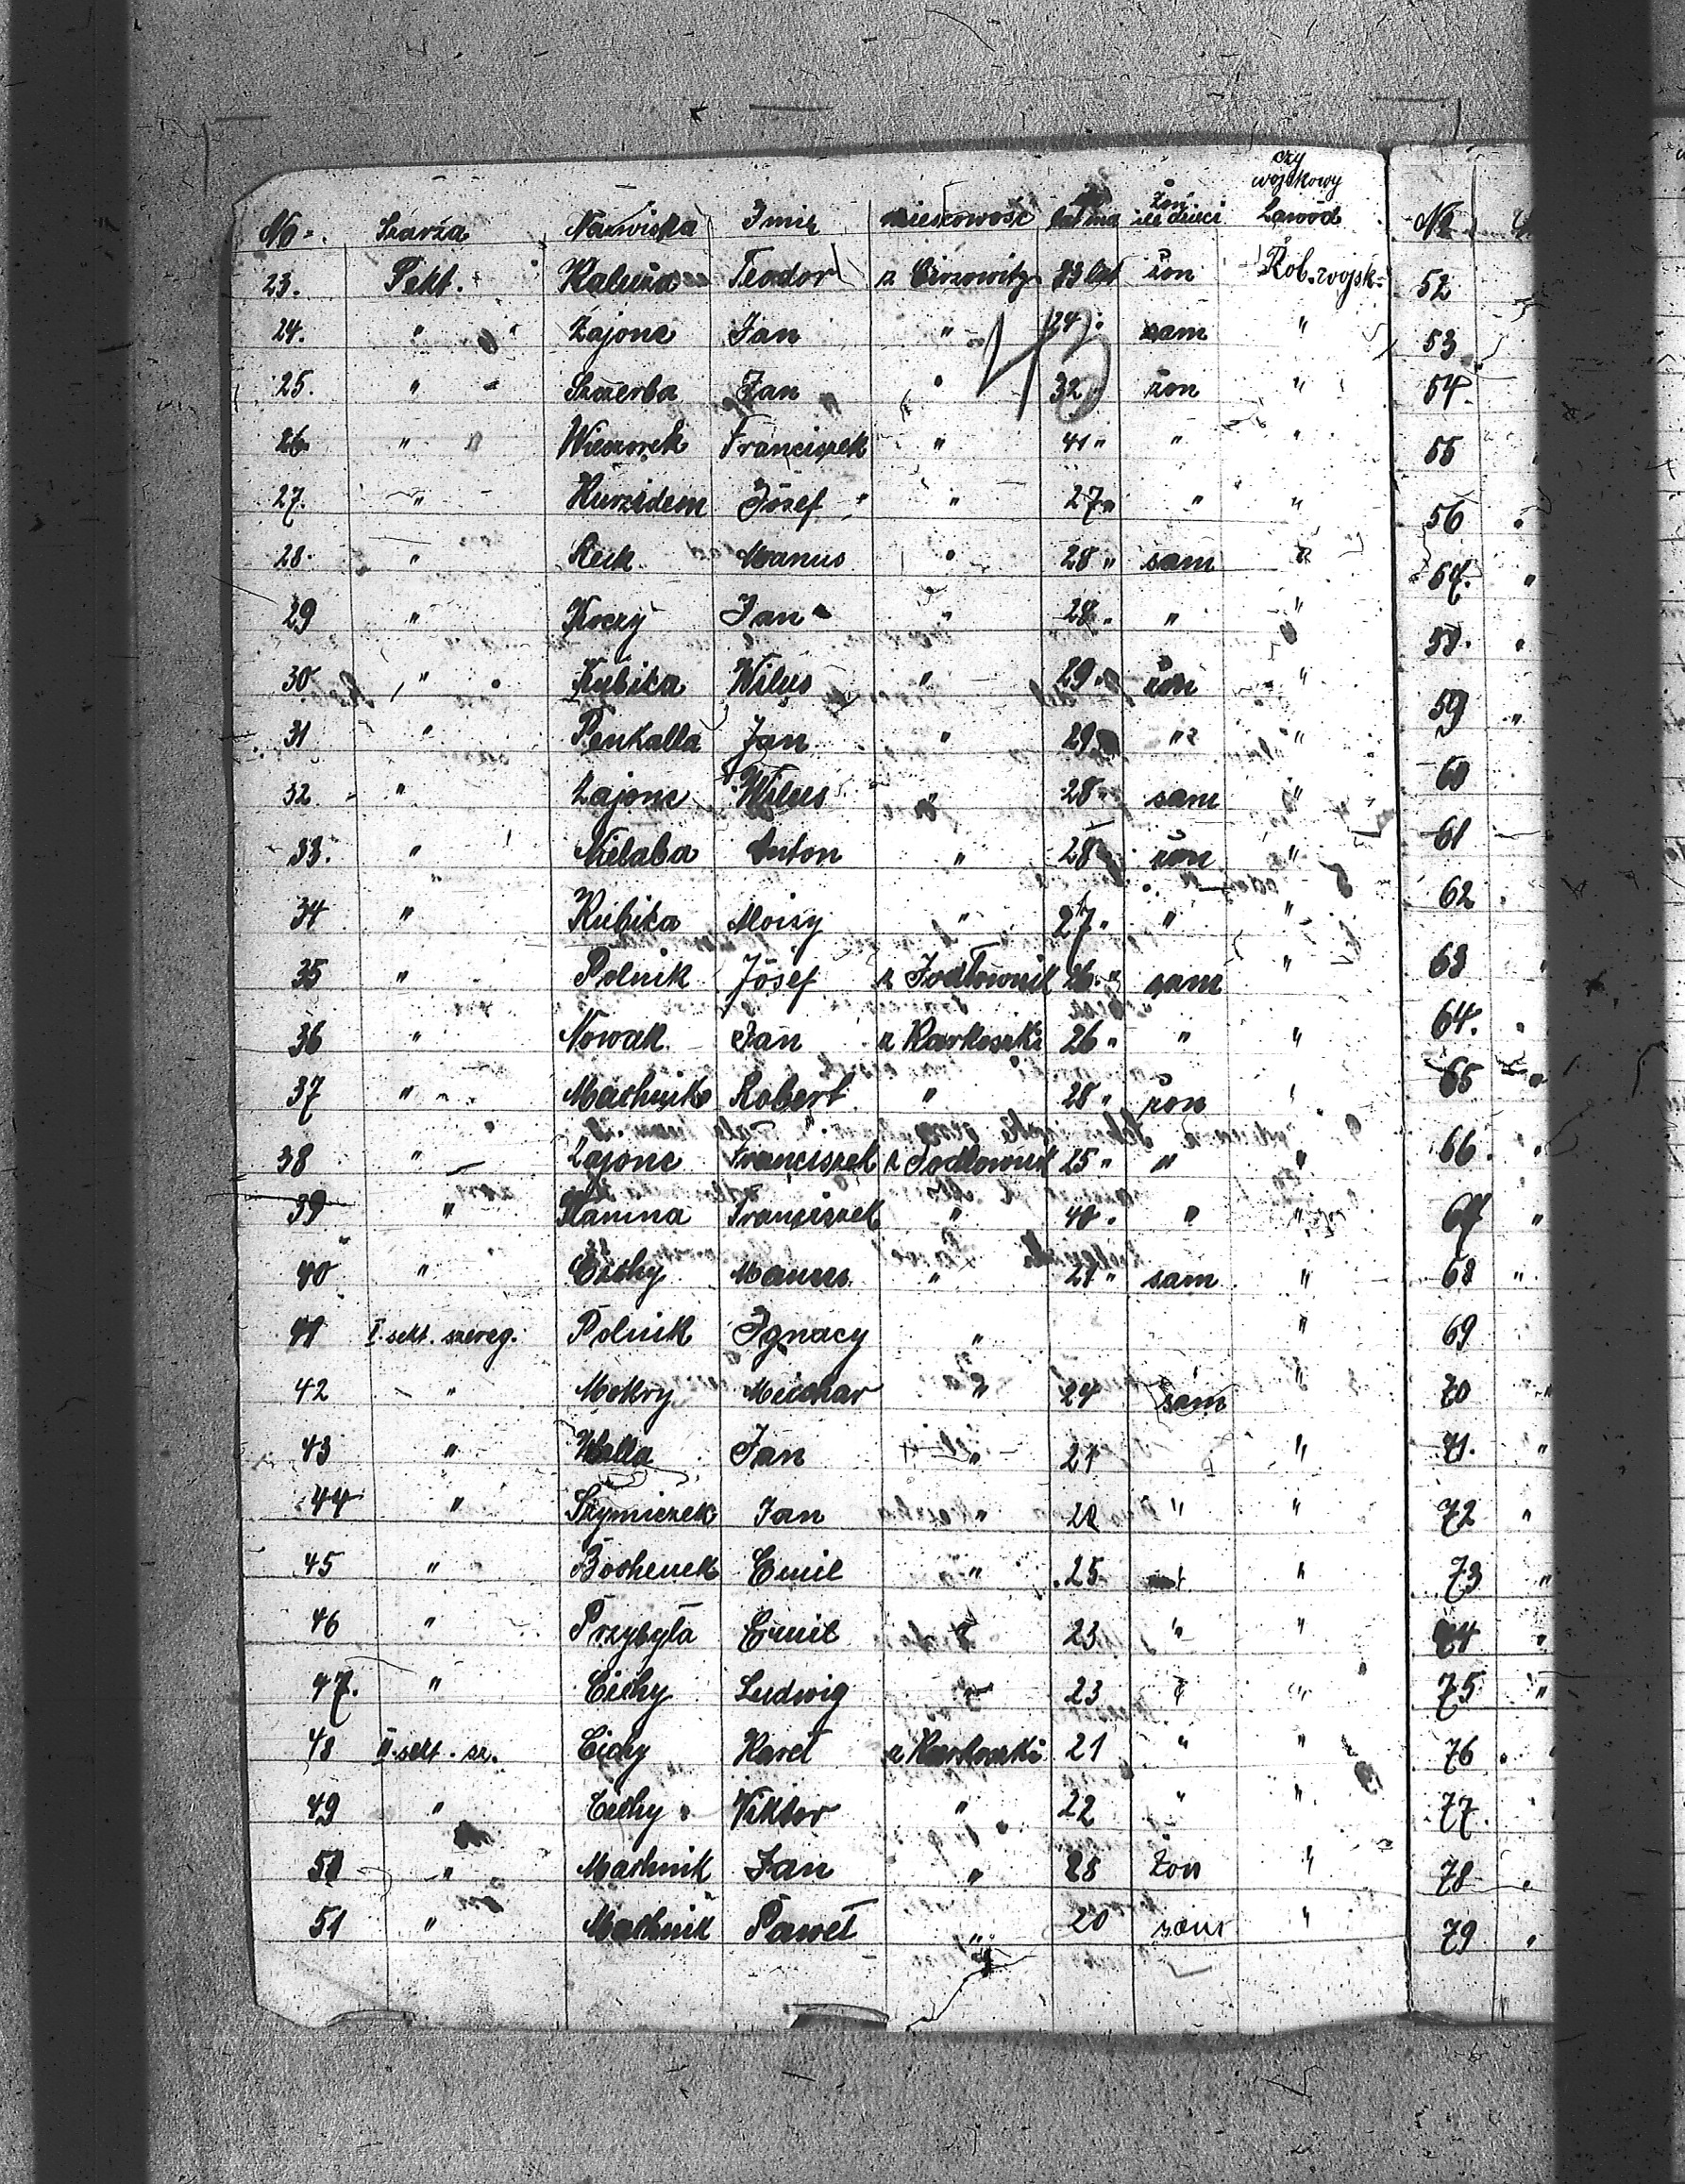 czy
wojskowy
No Szarża Nazwiska Imię mieskowość lat ma żon. ile dzieci Zawód No
23. Sekt. Kaluża Teodor z Cirzowitz 33 lat żon Rob. wojsk. 52
24. " Zajonc Jan " 24 " sam " 53
43
25. " Szczerba Jan " 32 żon " 54.
26. " Wieczorek Franciszek " 41 " " " 55
27. " Kurzidem Józef " 27 " " " 56
28. " Reck Manus " 28 " sam " 57.
29 " Koczy Jan " 28 " " " 58.
30 " Kubica Wilus " 29 " żon " 59 "
31 " Penkalla Jan " 29 " " " 60
32 " Zajonc Wilus " 28 " sam " 61
33. " Anton " 28 " żon " 62
34 " Kubica Aloizy " 27 " " " 63
35 " Polnik Józef z Jodłownik 26 " sam " 64.
36 " Nowak Jan z Karkoszki 26 " " " 65
37 " Machnik Robert " 28 " żon " 66
38 " Zajonc Franciszek z Jodłownik 25 " " " 67 "
39 " Franciszek " 40 " " "
40 " Cichy Manus " 21 " sam " 68 "
41 I. sekt. szereg. Polnik Ignacy " " 69
42 " Mokry " 24 sam " 70 "
43 " Walla Jan " 21 " 71. "
44 " Szymiczek Jan " 22 " " 72 "
45 " Bochenek Emil " 25 " 73 "
46 " Przybyła Emil " 23 " " 74 "
47. " Cichy Ludwig " 23 " " 75 "
48 II. sekt. sz. Cichy Karol z Karkoszki 21 " " 76 "
49 " Cichy Viktor " 22 " " 77.
50 " Machnik Jan " 28 żon " 78 "
51 " Machnik Paweł " 20 sam " 79 "